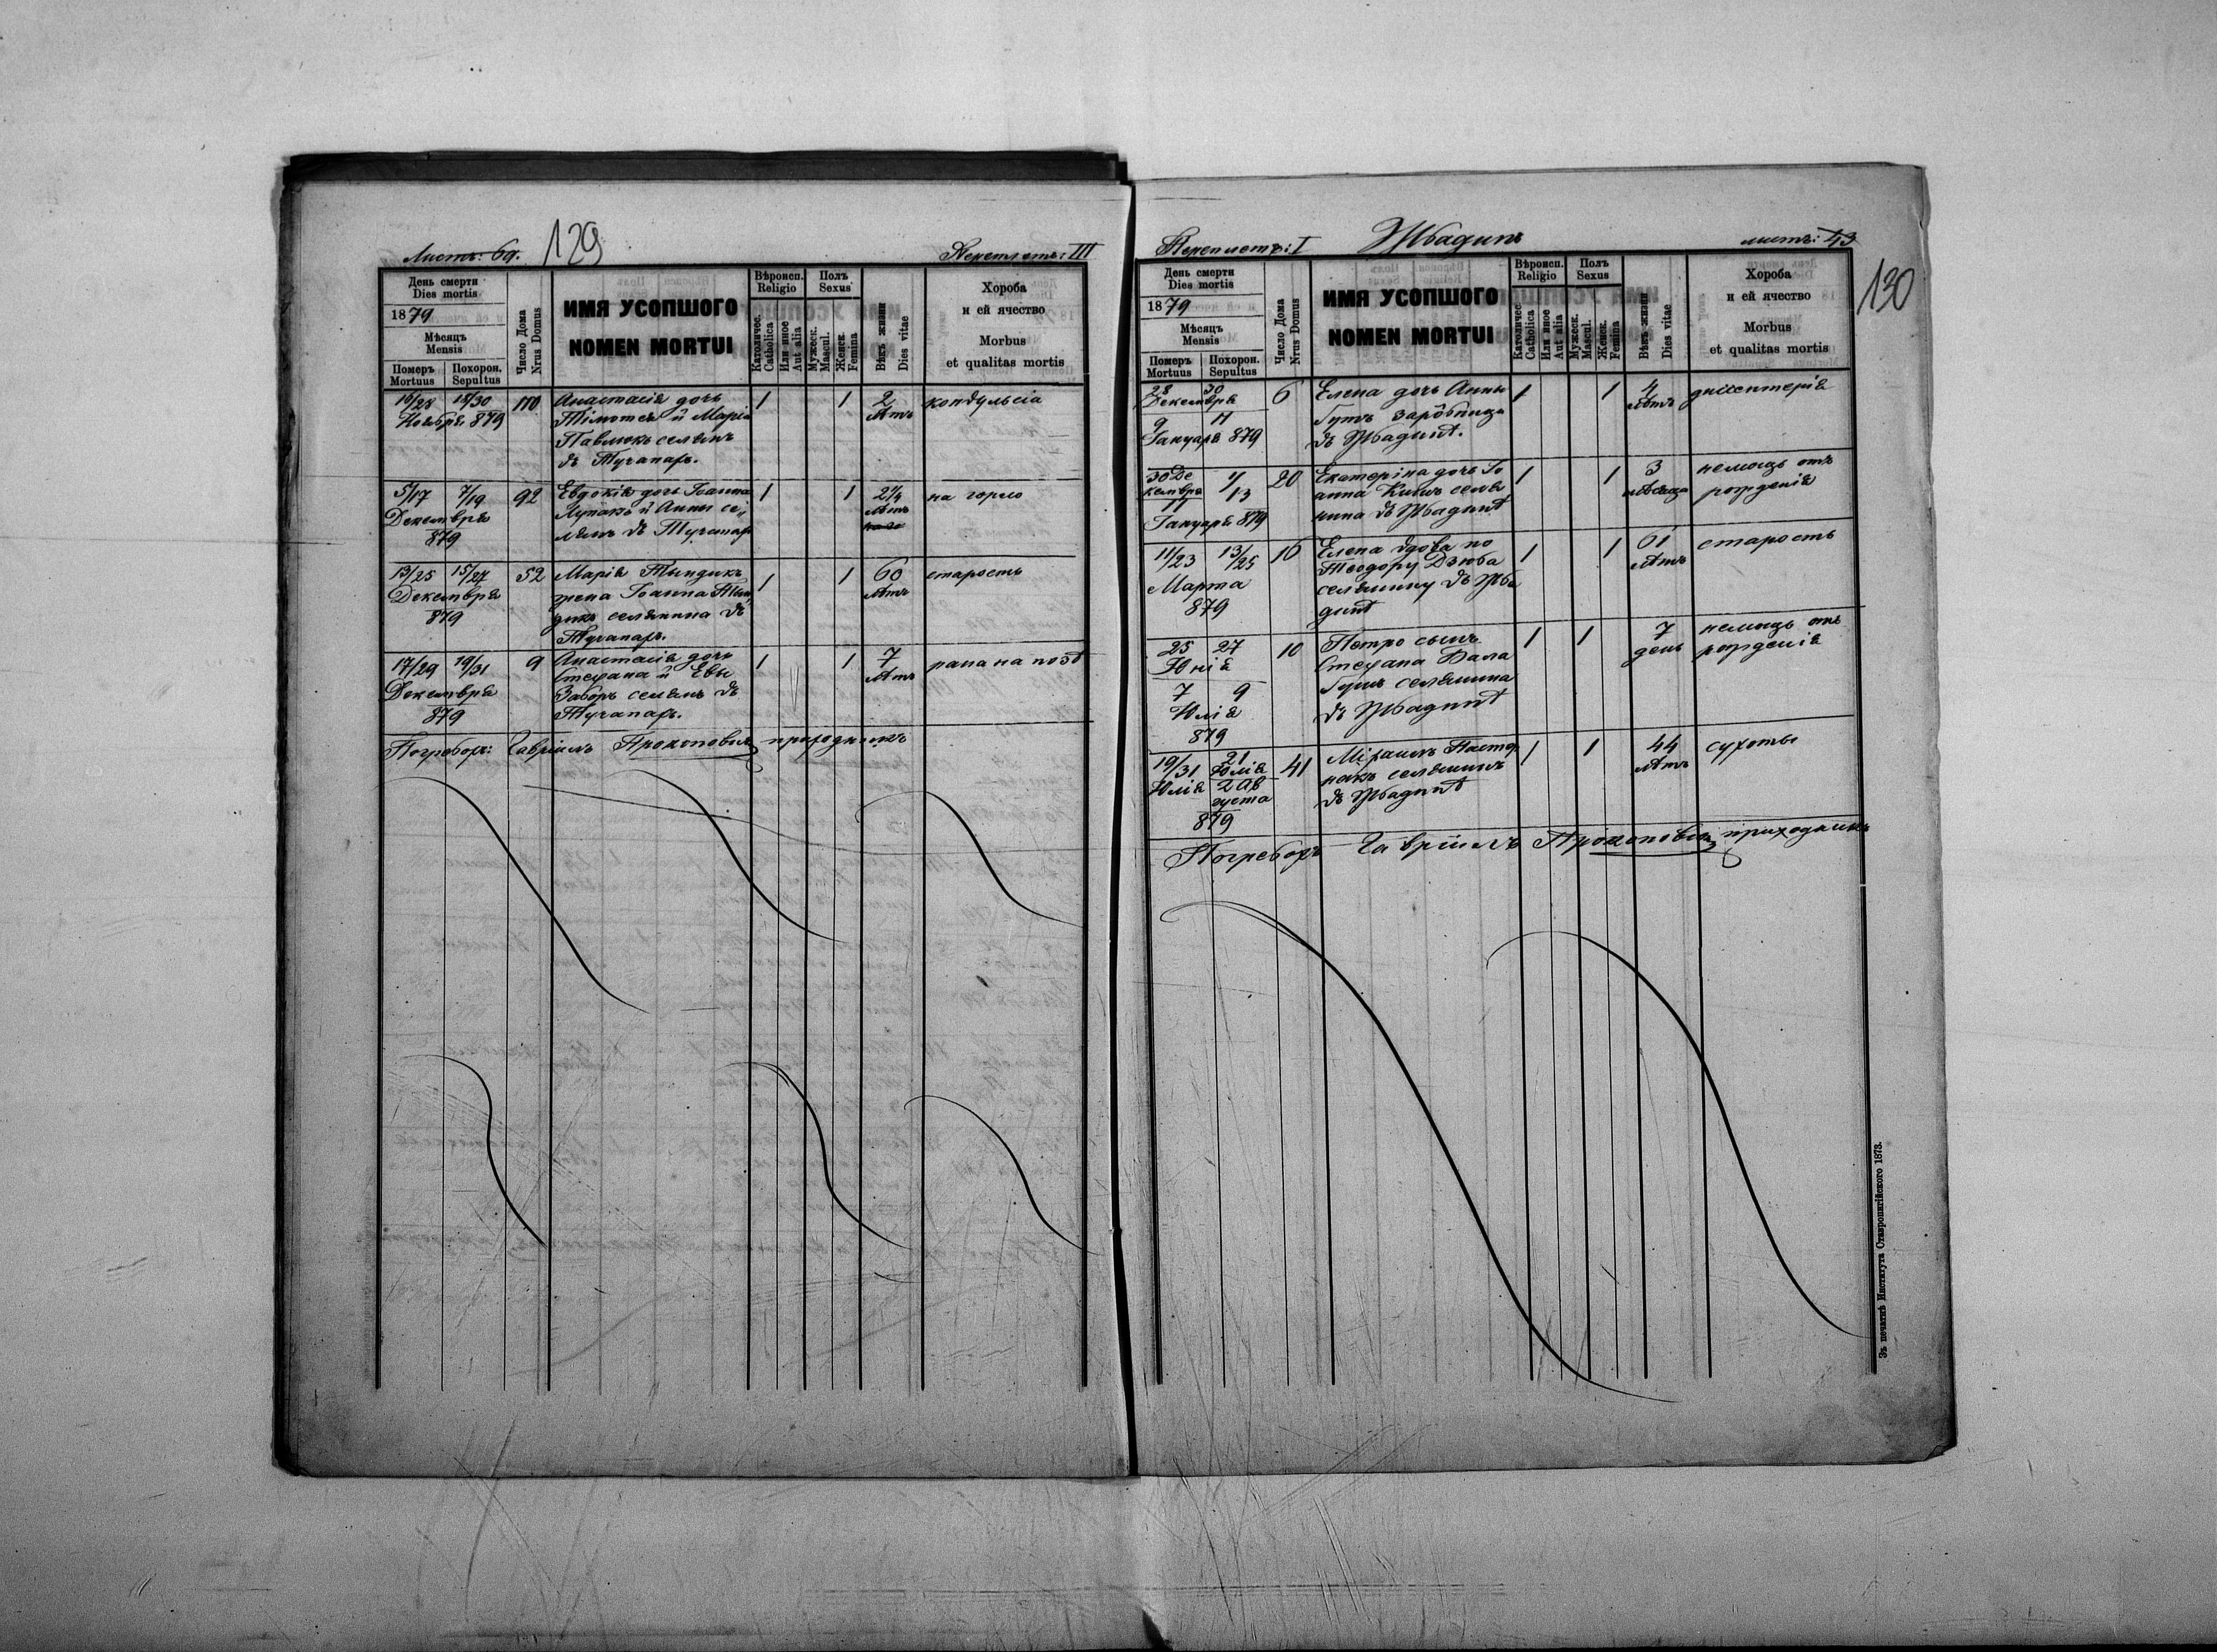 Листъ: 69.
129
Переплетъ: III
День смерти
Dies mortis
1879
Мѣсяцъ
Mensis
Померъ
Mortuus
Похорон.
Sepultus
Число Дома
Nrus Domus
ИМЯ УСОПШОГО
NOMEN MORTUI
Вѣроисп.
Religio
Католичес.
Catholica
Или иное
Aut alia
Полъ
Sexus
Мужеск.
Mascul.
Женск.
Femina
Вѣкъ жизни
Dies vitae
Хороба
и ей ячество
Morbus
et qualitas mortis
16/28 18/30 170 Анастасія дочь 1 1 2 конвульсія
Ноября 879 Тімотея и Маріи лѣтъ
Павлюкъ селянъ
въ Тучапахъ.
5/17 7/19 92 Евдокія дочь Іоанна 1 1 2 1/4 на горло
Декемврія Лупакъ и Анны се„ лѣтъ
879 лянъ въ Тучапах
13/25 15/27 52 Марія Тындикъ 1 1 60 старость
Декемврія жена Іоанна Тын„ лѣтъ
879 дикъ селянина въ
Тучапахъ.
17/29 19/31 9 Анастасія дочь 1 1 7 рана на нозѣ
Декемврія Стефана и Евы лѣтъ
879 Заборъ селянъ въ
Тучапахъ.
Погребохъ: Гавріилъ Прокоповичъ приходникъ
Переплетъ: I
Жбадинъ
листъ: 43
130
День смерти
Dies mortis
1879
Мѣсяцъ
Mensis
Померъ
Mortuus
Похорон.
Sepultus
Число Дома
Nrus Domus
ИМЯ УСОПШОГО
NOMEN MORTUI
Вѣроисп.
Religio
Католичес.
Catholica
Или иное
Aut alia
Полъ
Sexus
Мужеск.
Mascul.
Женск.
Femina
Вѣкъ жизни
Dies vitae
Хороба
и ей ячество
Morbus
et qualitas mortis
28 30 6 Елена дочь Анны 1 1 4 диссентерія
Декемврія Гутъ зарôбница лѣтъ
9 11 въ Жбадинѣ.
Іануарія 879
30 Де 1/13 20 Екатеріна дочь Іо 1 1 3 немощь отъ
кемврія анна Кишъ селя мѣсяца рожденія
11 нина въ Жбадинѣ
Іануарія 879
11/23 13/25 16 Елена вдова по 1 1 61 старость
Марта Теодору Дзюба лѣтъ
879 селянину въ Жба
динѣ
25 27 10 Петро сынъ 1 1 7 немощь отъ
Юнія Стефана Бала день рожденія
7 9 гушъ селянина
Юлія въ Жбадинѣ
879
19/31 21 41 Міхаилъ Пастер 1 1 44 сухоты
Юлія Юлія накъ селянинъ лѣтъ
2 Ав въ Жбадинѣ
густа
879
Погребохъ Гавріилъ Прокоповичъ приходникъ
Зъ печатнѣ Института Ставропигійского 1873.